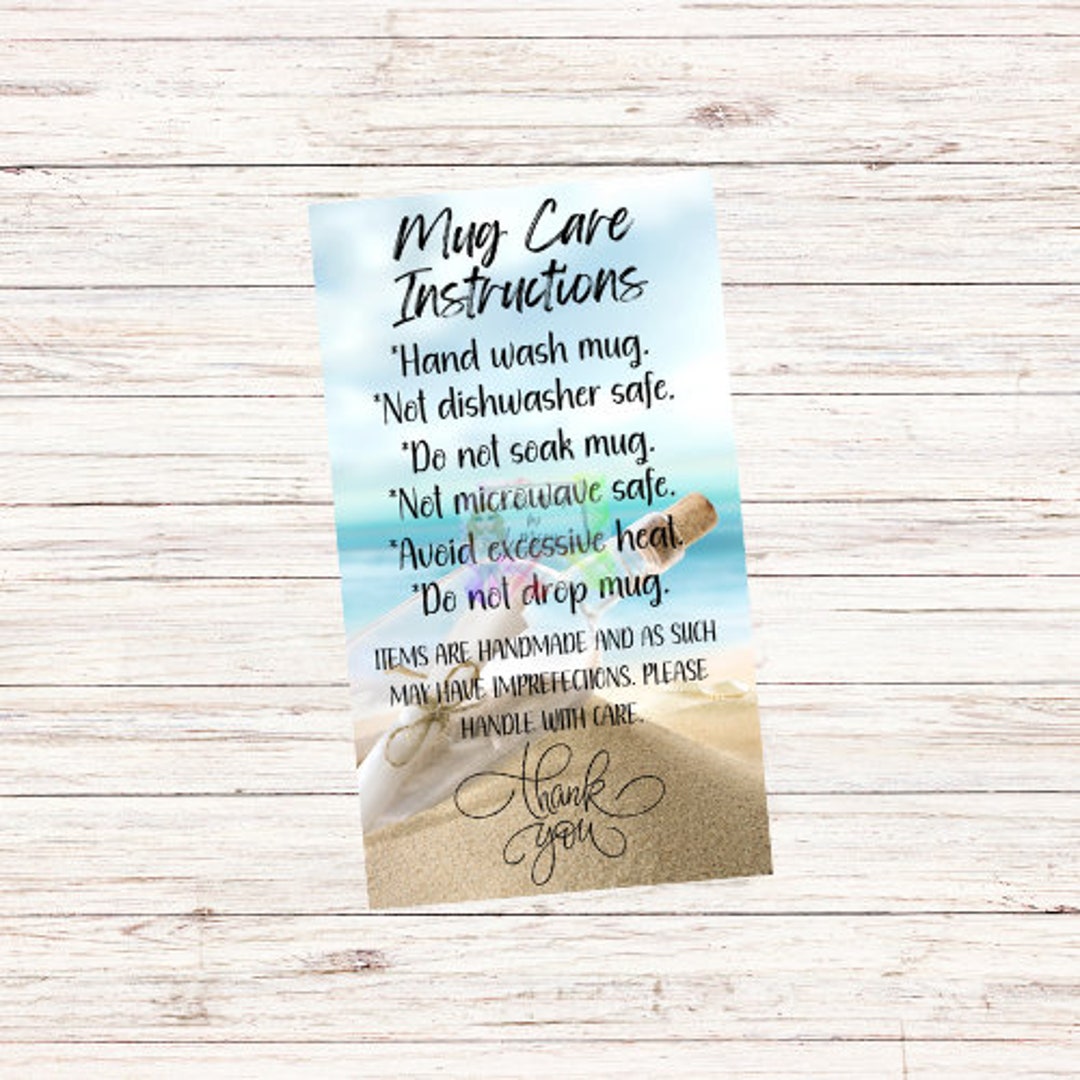 Mug Care
Instructions
*Hand wash mug.
*Not dishwasher safe.
*Do not soak mug.
*Not microwave safe.
*Avoid excessive heat.
*Do not drop mug.
ITEMS ARE HANDMADE AND AS SUCH
MAY HAVE IMPREFECTIONS. PLEASE
HANDLE WITH CARE.
thank
you